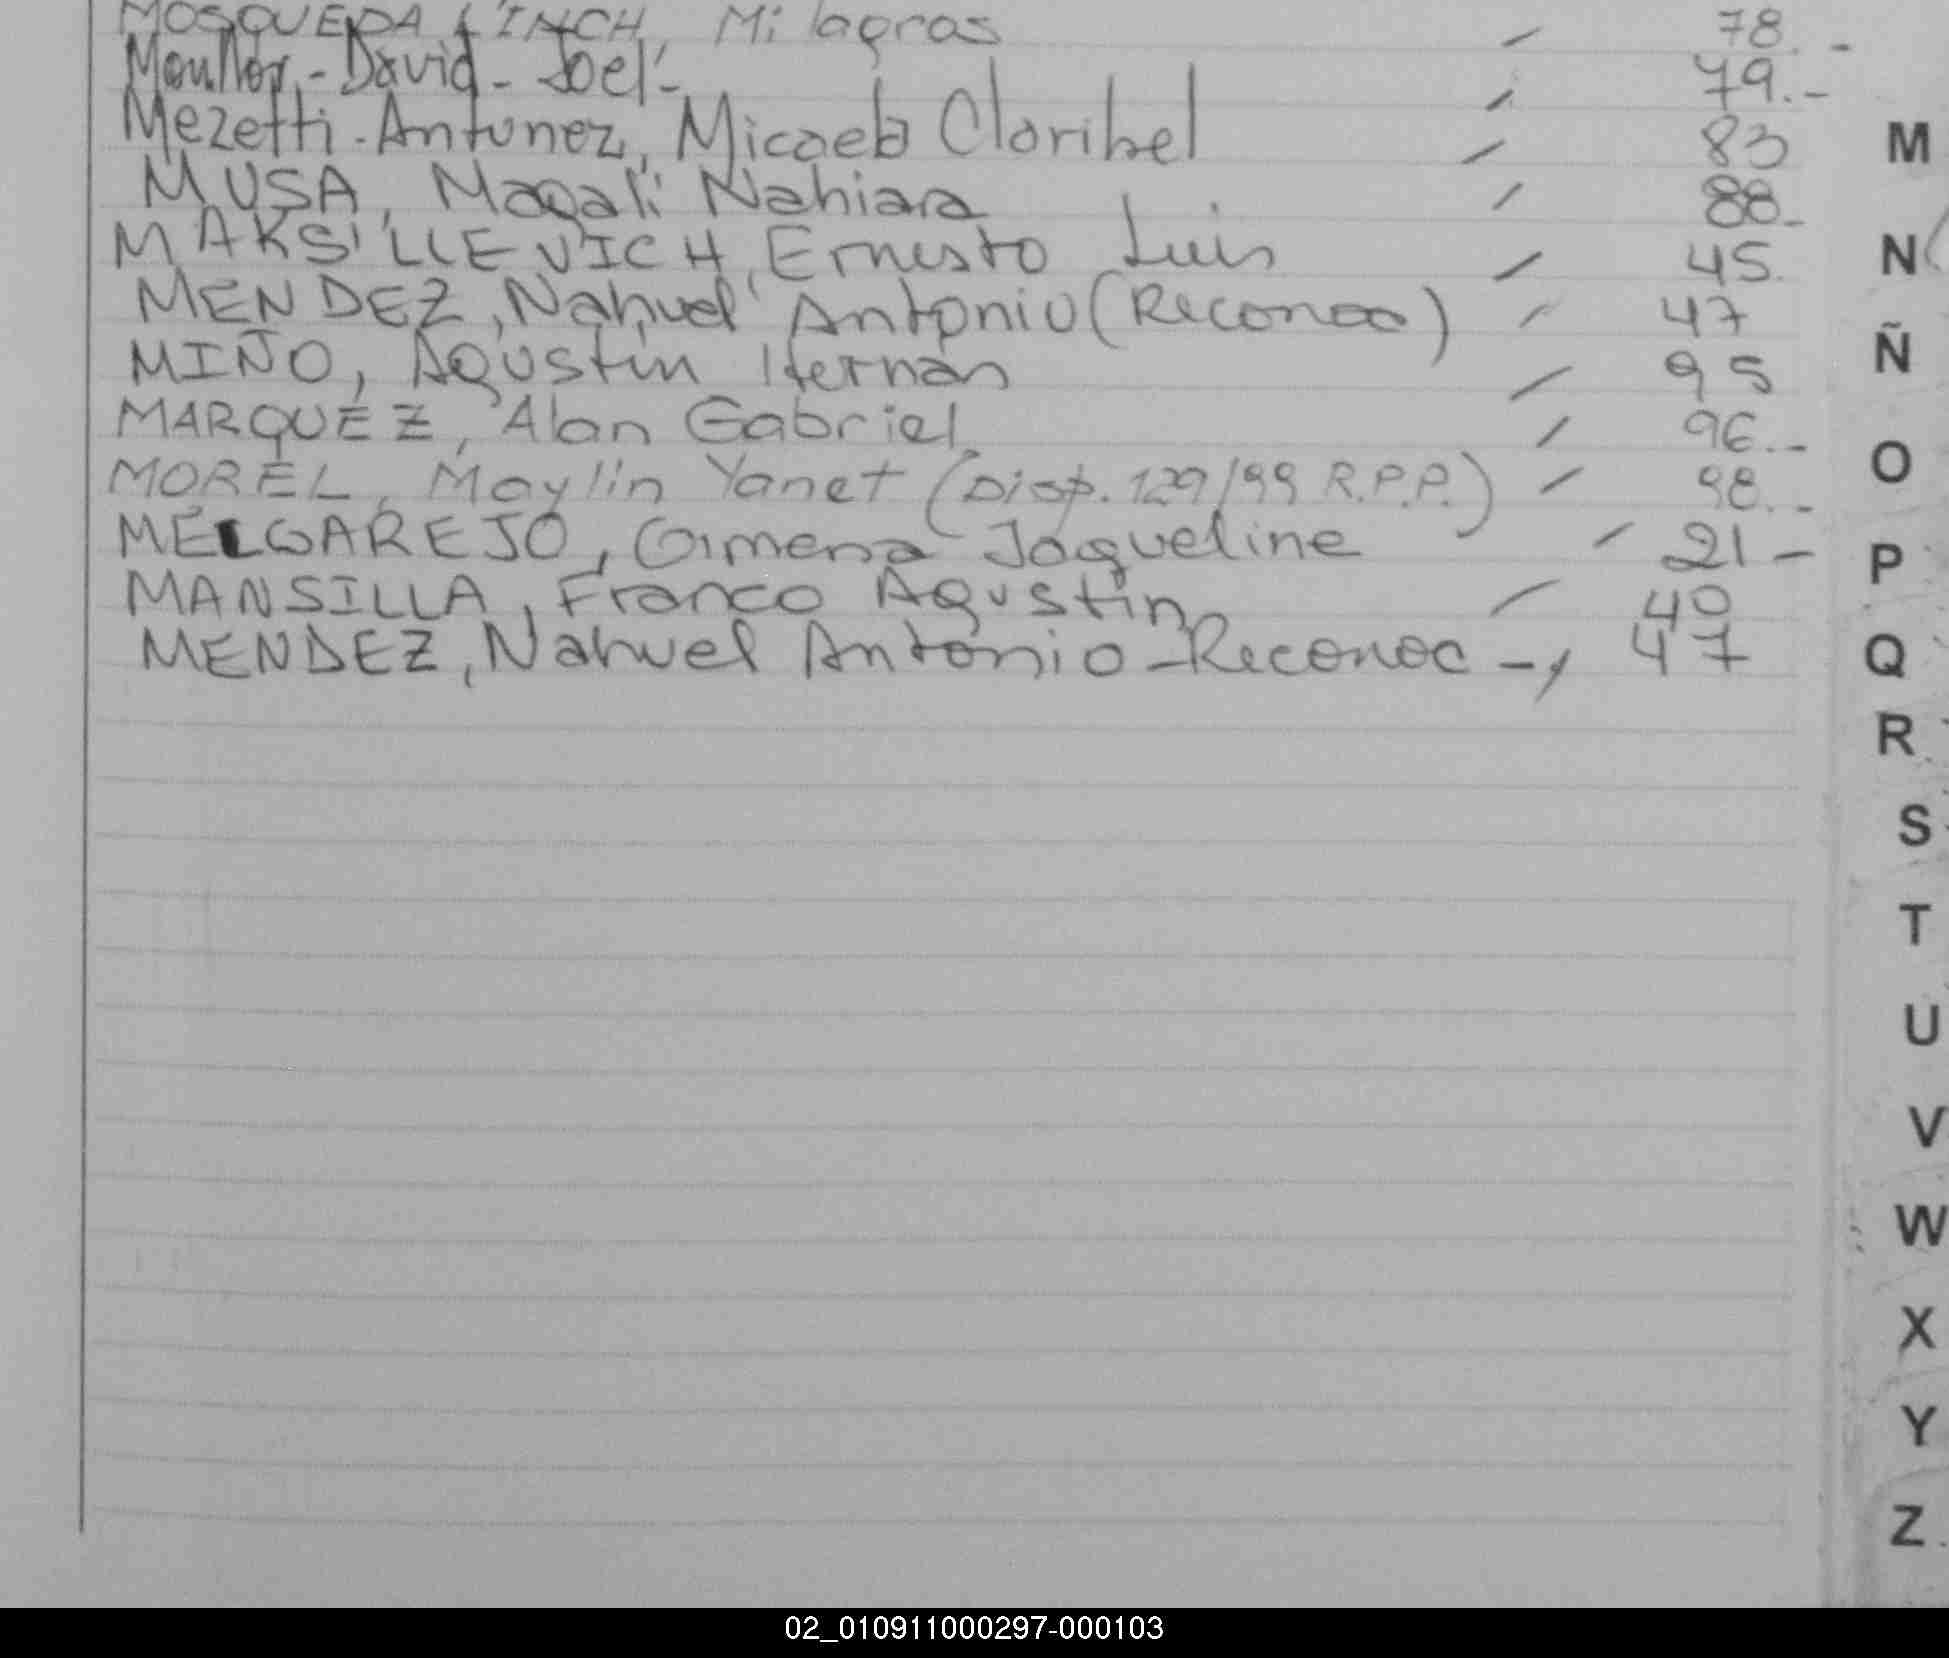 MOSQUEDA LINCH, Milagros / 78.-
Moullor - David - Joel - / 79.-
Mezetti - Antunez, Micaela Claribel / 83
MUSA, Magali Nahiara / 88-
MAKSILLEVICH, Ernesto Luis / 45
MENDEZ, Nahuel Antonio (Reconoc) / 47
MIÑO, Agustin Hernan / 95
MARQUEZ, Alan Gabriel / 96.-
MOREL, Maylin Yanet (Disp. 129/99 R.P.P.) / 98.-
MELGAREJO, Gimena Jaqueline / 21 -
MANSILLA, Franco Agustin / 40
MENDEZ, Nahuel Antonio - Reconoc - / 47
M
N
Ñ
O
P
Q
R
S
T
U
V
W
X
Y
Z
02_010911000297-000103